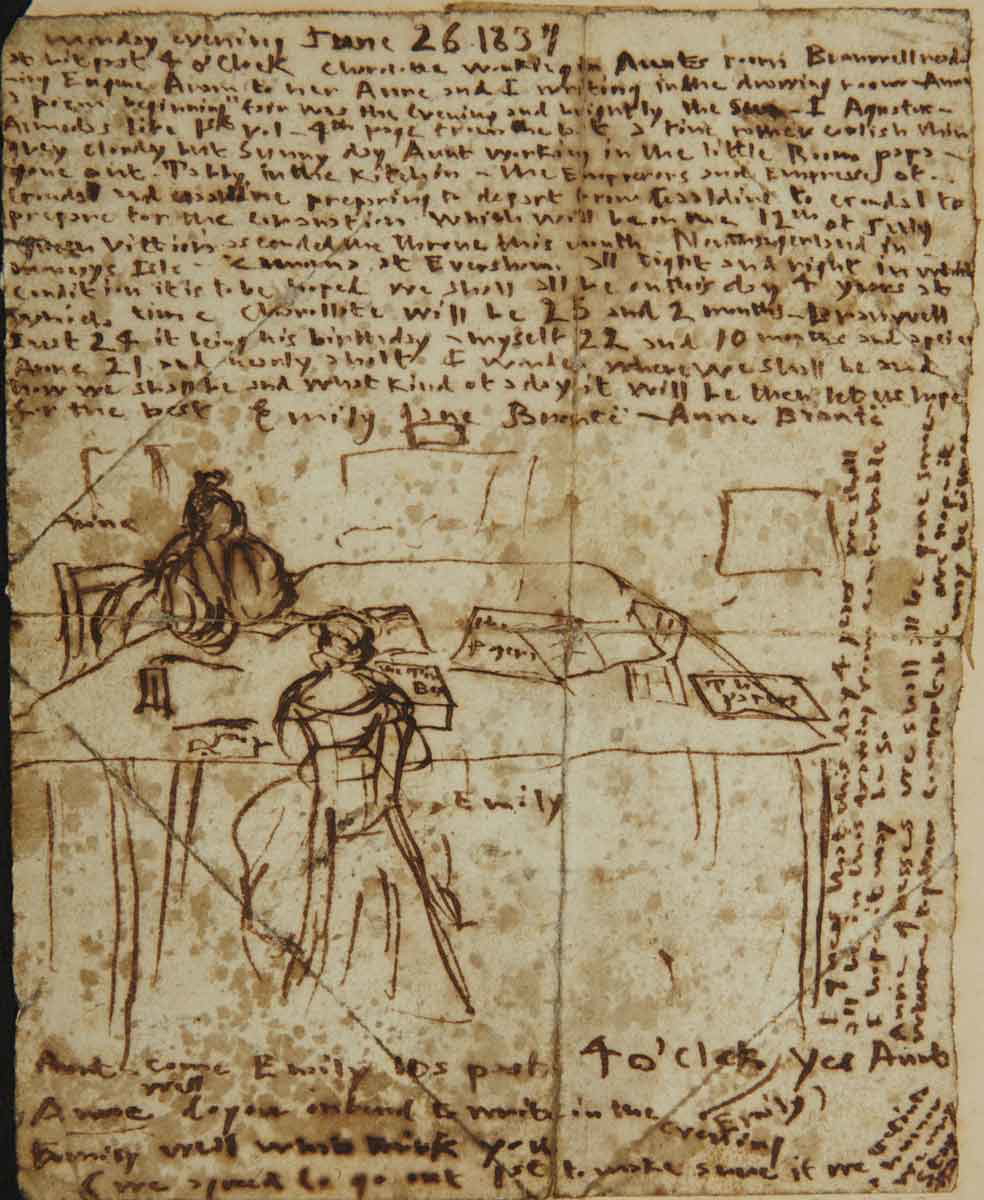 Monday evening June 26 1837
a bit past 4 o'Clock Charolotte working in Aunts room Branwell read
ing Eugene Aram to her Anne and I writing in the drawing room - Anne
a poem beginning "fair was the evening and brightly the Sun - I Agustus -
Almedas life 1st vol - 4th page from the last a fine rather coolish thin
grey cloudy but Sunny day Aunt working in the little Room papa -
gone out. Tabby in the Kitchin - the Emperors and Empresses of
Gondal and Gaaldine preparing to depart from Gaaldine to Gondal to
prepare for the coranation which will be on the 12th of July
Queen Vittiora ascended the throne this month. Northangerland in
Monceys Isle - Zamorna at Eversham. all tight and right in which
condition it is to be hoped we shall all be on this day 4 years at
which time Charollote will be 25 and 2 months - Branwell
just 24 it being his birthday - myself 22 and 10 months and a peice
Anne 21 and nearly a half I wonder where we shall be and
how we shall be and what kind of a day it will be then let us hope
for the best Emily Jane Brontë - Anne Brontë
Anne
The
Papers
The
papers
Emily
I guess that this day 4 years we shall
all be in this drawing room comfortable
I hope it may be so.
Anne guesses we shall all be gone some-
where together comfortable We hope it
may be either
Aunt. come Emily Its past 4 o'Clck Yes Aunt
(Emily)
Anne well do you intend to write in the evening
Emily well what think you
(we agreed to go out 1st to make sure if we